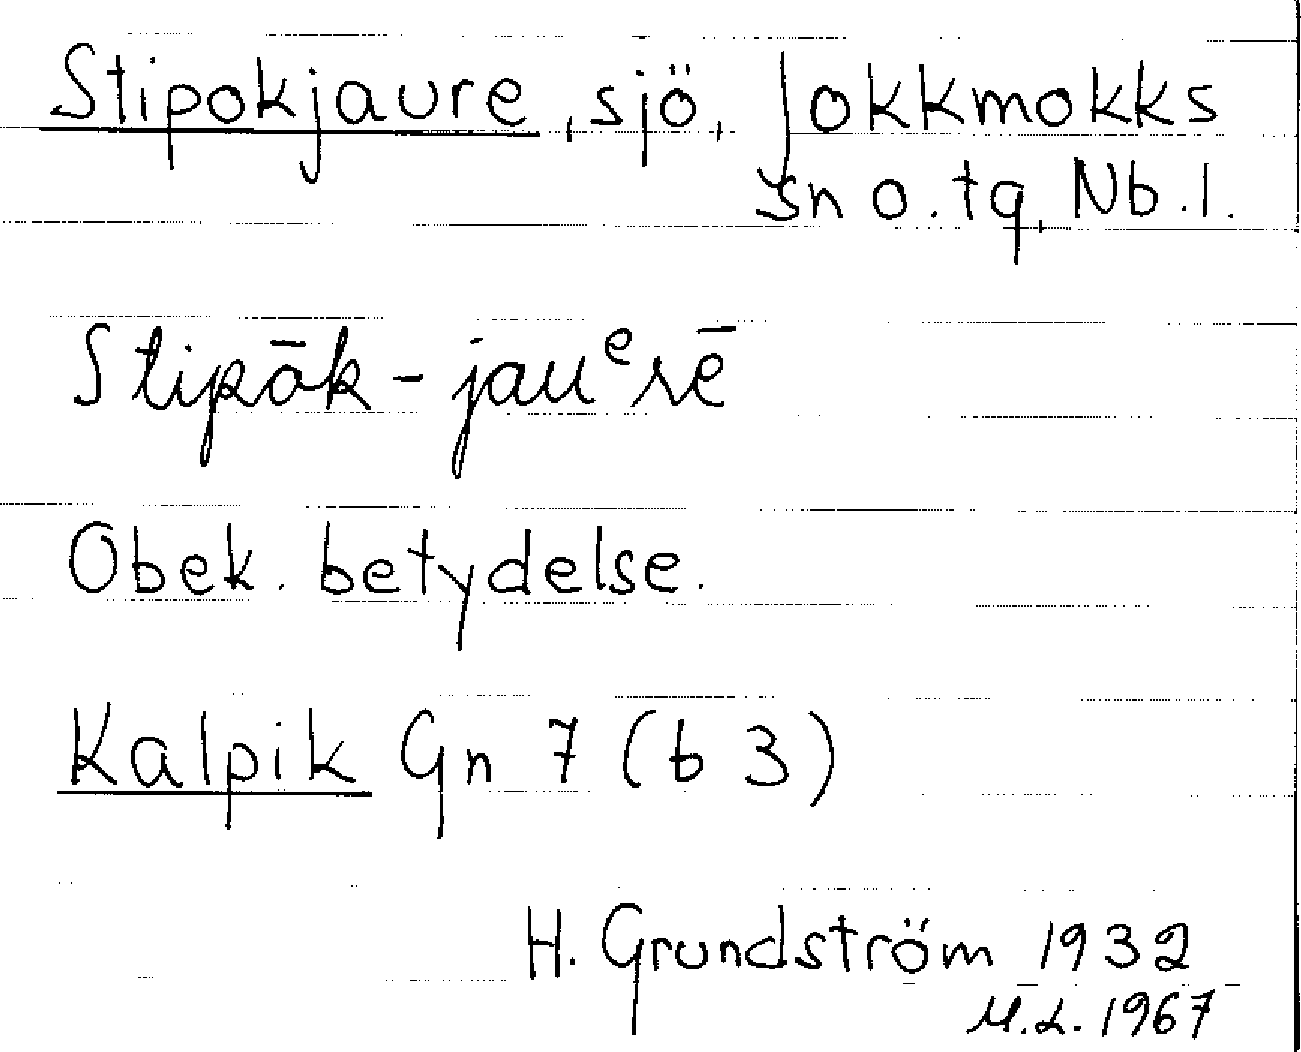 Stipokjaure, sjö, Jokkmokks
sn o. tg, Nb. l.
Stipāk-jauᵉrē
Obek. betydelse.
Kalpik Gn 7 (b 3)
H. Grundström 1932
M.L. 1967